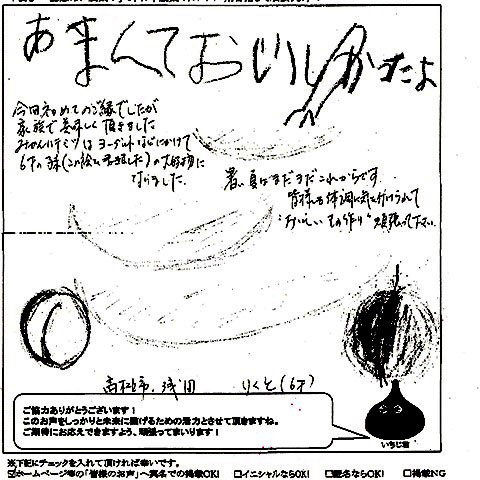 あまんておいしかったよ
今回初めてのご縁でしたが
家族で美味しく頂きました
みかんハチミツはヨーグルトなどにかけて
6才の孫(この絵を
になりました.
暑い夏はまだまだこれからです.
皆様も体調に気を付けられて
"おいしいもの作り"頑張って下さい.
高松市. 浅田 りくと(6才)
ご協力ありがとうございます!
このお声をしっかりと未来に繋げるための活力とさせて頂きますね。
ご期待にお応えできますよう、頑張ってまいります!
いちじ君
※下記にチェックを入れて頂ければ幸いです。
☑ホームページ等の「皆様のお声」へ実名での掲載OK! □イニシャルならOK! □匿名ならOK! □掲載NG